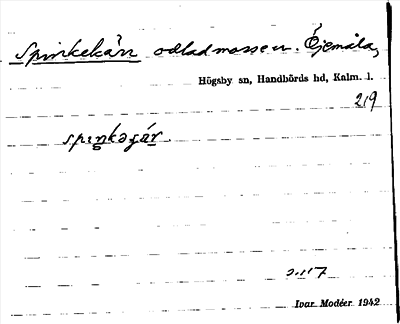 Spinkekärr odlad mosse n. Öjemåla,
Högsby sn, Handbörds hd, Kalm. l.
219
spiŋkəɟär.
Ivar Modéer 1942